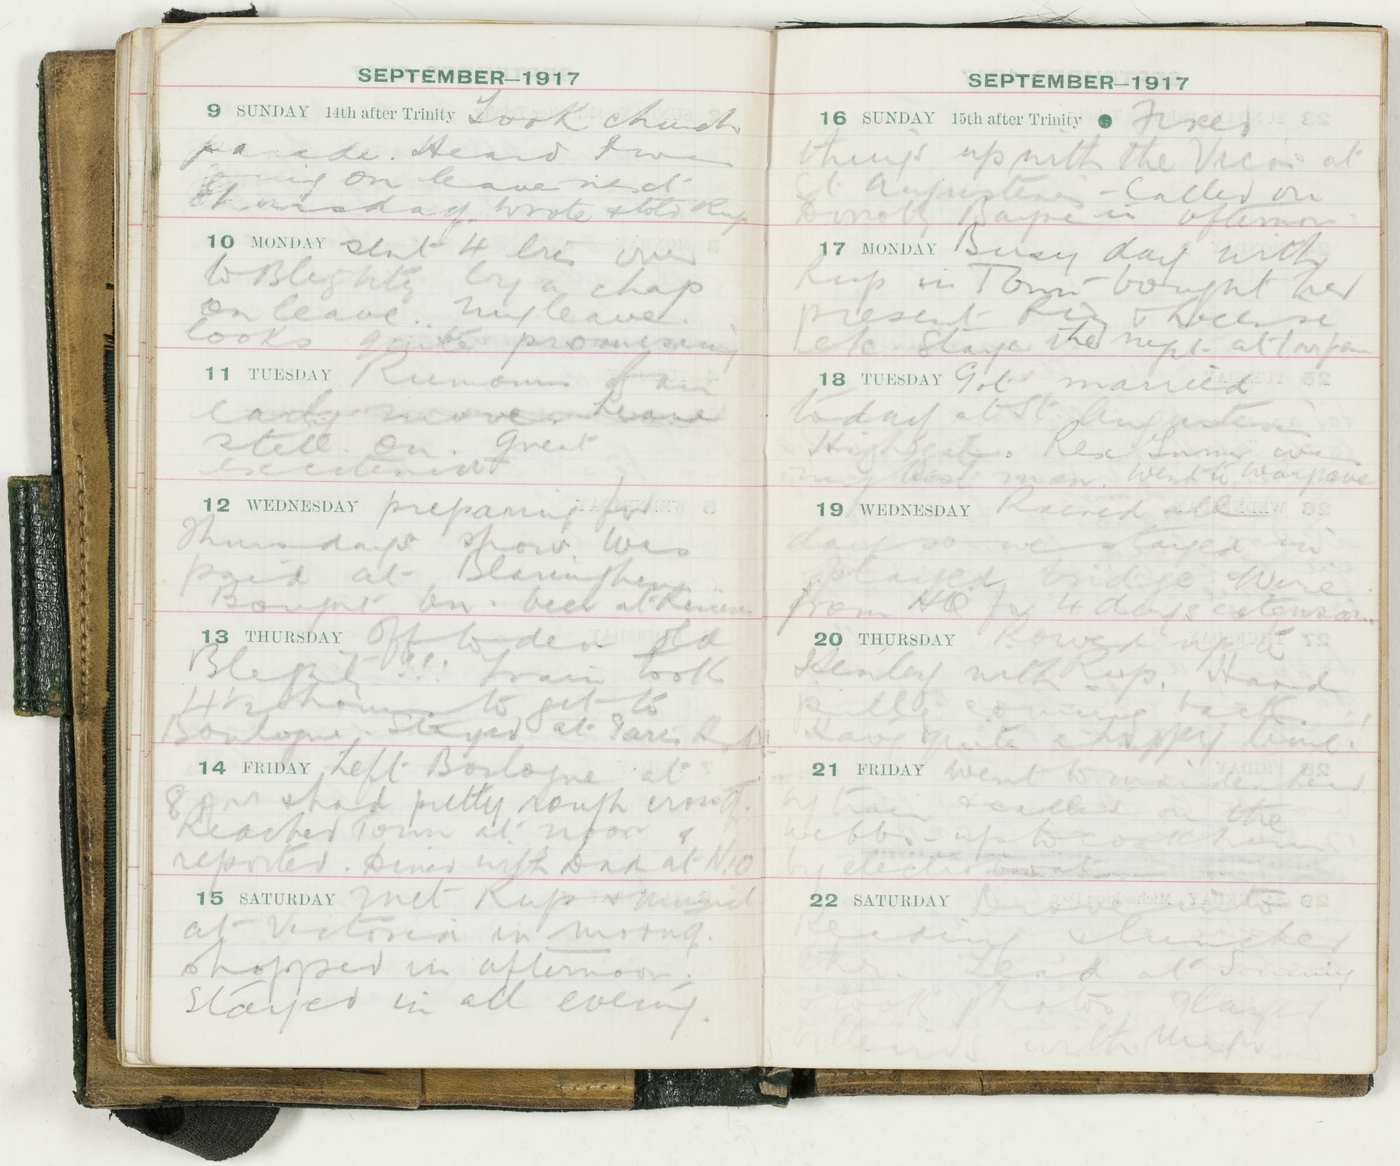 SEPTEMBER—1917
9 SUNDAY 14th after Trinity Took church
parade. Heard I was
going on leave next
Thursday. Wrote & told Rup
10 MONDAY sent 4 over
to Blighty by a chap
on leave. My leave
looks quite promising
11 TUESDAY Rumours of an
early move. Leave
still on. Great
excitement
12 WEDNESDAY preparing for
Thursday's show. Was
paid at Blaringhem
Bought beer at
13 THURSDAY Off to dear old
Blighty !!! Train took
4½ hours to get to
Boulogne. Stayed at Paris
14 FRIDAY Left Boulogne at
& had pretty rough crossg.
Reached Town at noon &
reported. Dined with Dad at
15 SATURDAY Met Rup &
at Victoria in morng.
Shopped in afternoon.
Stayed in all evening.
SEPTEMBER—1917
16 SUNDAY 15th after Trinity Fixed
things up with the Vicar at
St Augustine's - Called on
in afternoon.
17 MONDAY Busy day with
Rup in Town - bought her
present Ring & License
etc. the night at
18 TUESDAY Got married
today at St Augustines
Highgate. Rex was
my best man. Went to Wargrave
19 WEDNESDAY Rained all
day so we stayed in
& played bridge. Wire
from HQ for 4 days extension.
20 THURSDAY Rowed up to
Henley with Rup. Hard
pull coming back.
Having quite a happy time!
21 FRIDAY Went to Maidenhead
by train & called on the
Webbs - up to Cookham
by electric
22 SATURDAY Drove into
Reading & lunched
there. at Sonning
& took photos. Played
with